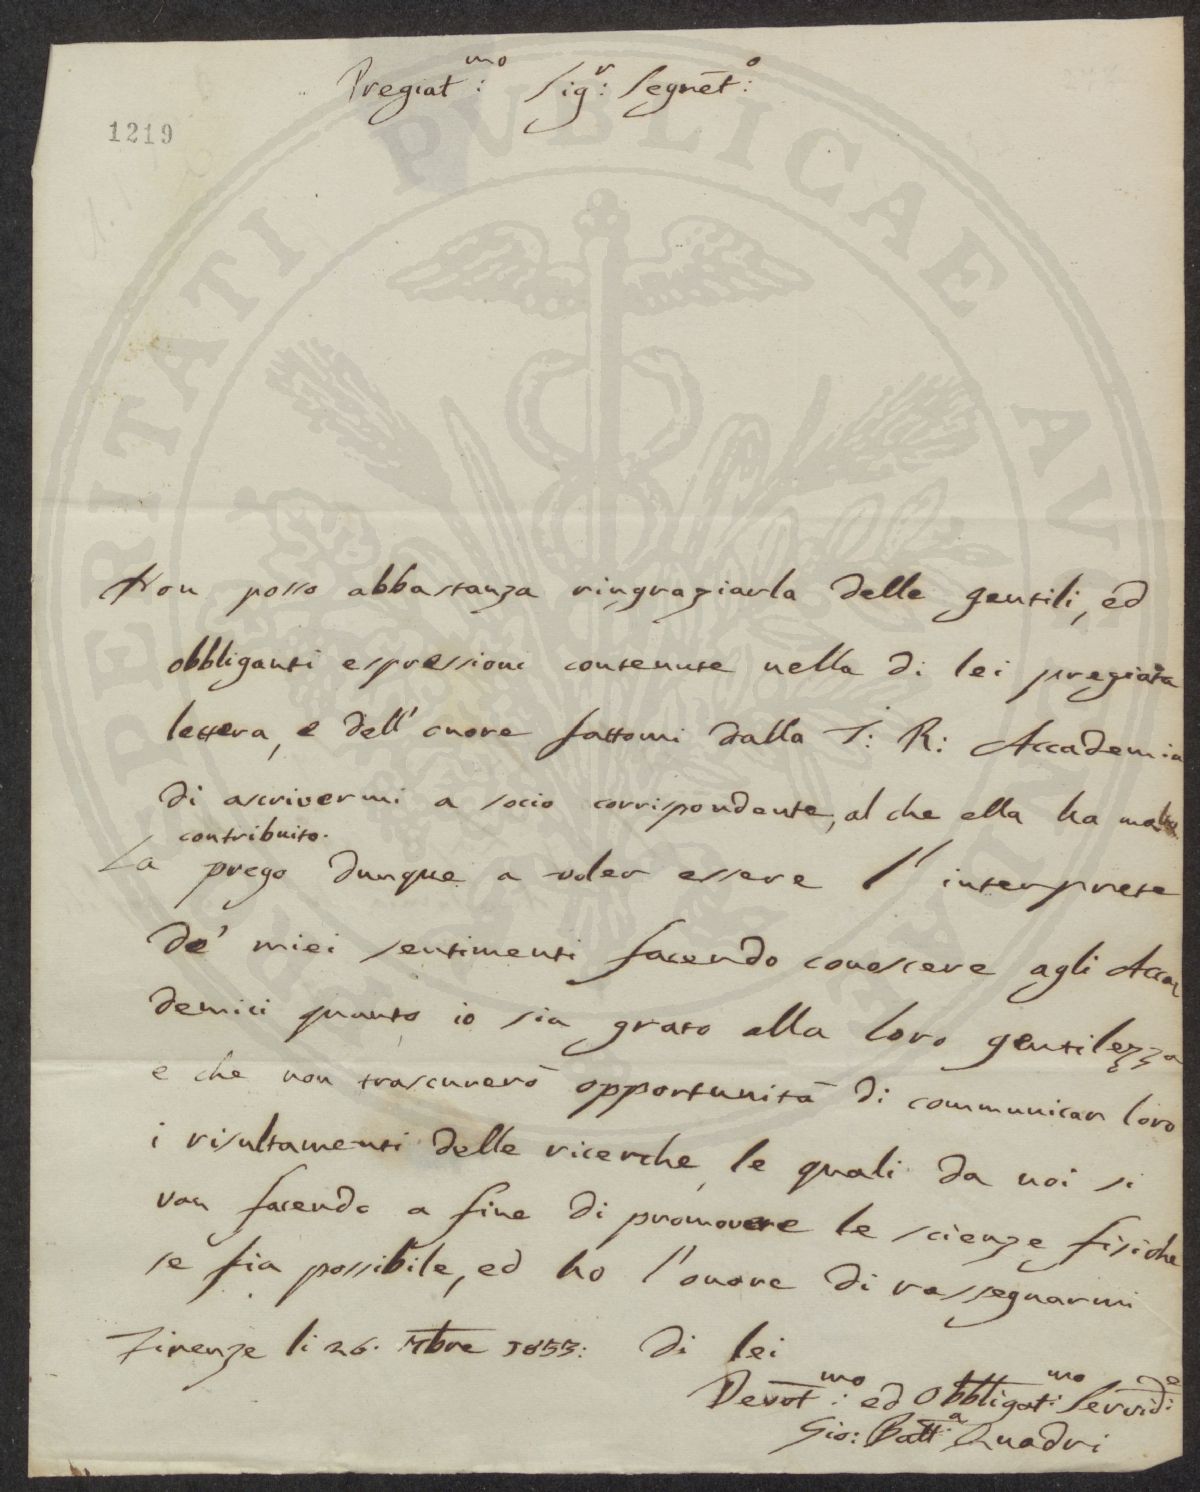 Pregiat:mo Sig:r Segret:o
1219
PERITATI PUBLICAE AU
Non posso abbastanza ringraziarla delle gentili, ed
obbliganti espressioni contenute nella di lei pregiata
lettera, e dell' onore fattomi dalla I: R: Accademia
di ascrivermi a socio corrispondente, al che ella ha molto
contribuito.
La prego dunque a voler essere l' interprete
de' miei sentimenti facendo conoscere agli Acca
demici quanto io sia grato alla loro gentilezza
e che non trascurerò opportunità di communicar loro
i risultamenti delle ricerche, le quali da noi si
van facendo a fine di promovere le scienze fisiche
se fia possibile, ed ho l'onore di rassegnarmi
Firenze li 26. bre 1833: di lei
Devot:mo ed Obbligat:mo Servid:e
Gio: Batt:a Quadri